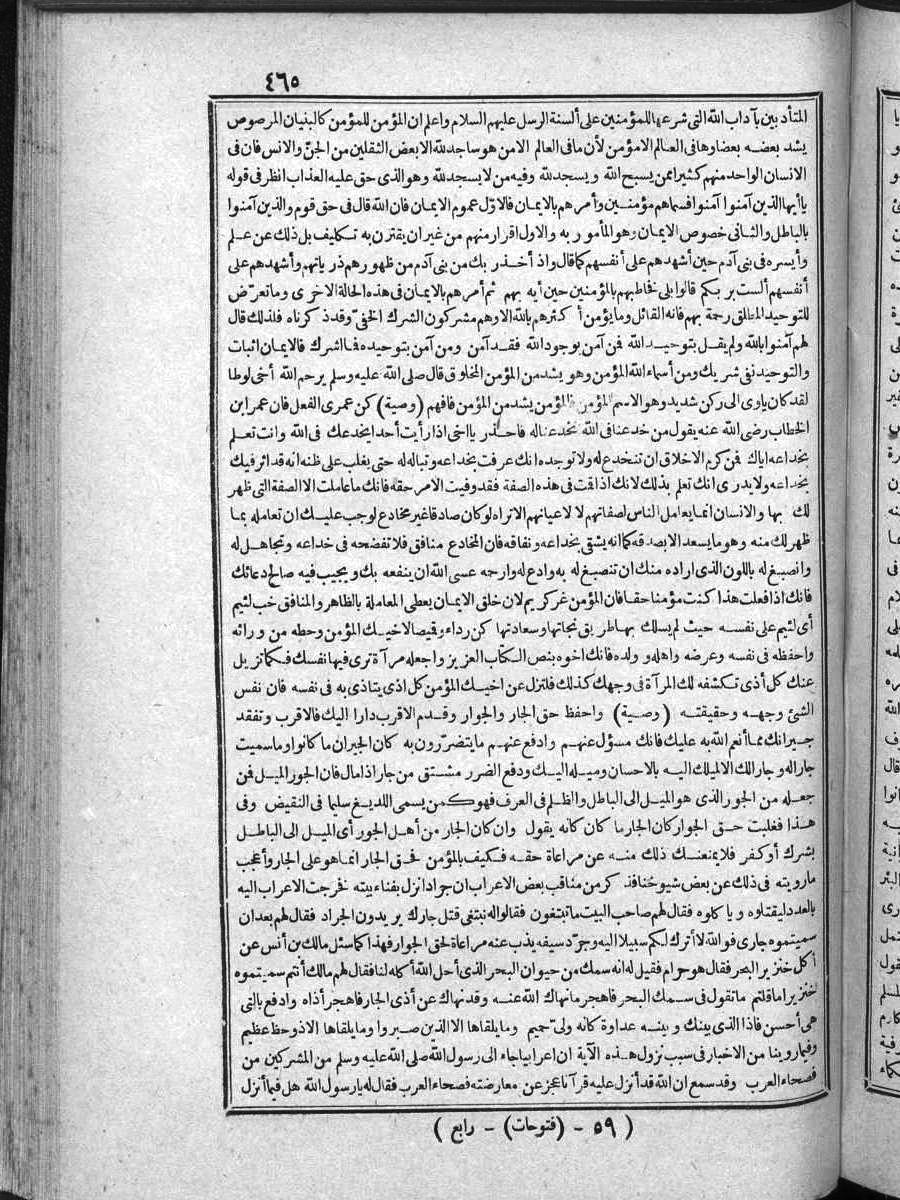 ٤٦٥
المتأدبين بآداب الله التي شرعها للمؤمنين على ألسنة الرسل عليهم السلام واعلم ان المؤمن للمؤمن كالبنيان المرصوص
يشد بعضه بعضا وما فى العالم الامؤمن لأن ما فى العالم الا من هو ساجد لله الا بعض الثقلين من الجن والانس فان فى
الانسان الواحد منهم كثيرا ممن يسبح الله ويسجد لله وفيه من لا يسجد لله وهو الذى حق عليه العذاب انظر فى قوله
يا أيها الذين آمنوا آمنوا فسماهم مؤمنين وأمرهم بالايمان فالاول عموم الايمان فان الله قال فى حق قوم والذين آمنوا
بالباطل والثانى خصوص الايمان وهو المأمور به والاول اقرار منهم من غير ان يقترن به تكليف بل ذلك عن علم
وأيسره فى بنى آدم حين أشهدهم على أنفسهم كما قال واذ أخذ ربك من بنى آدم من ظهورهم ذرياتهم وأشهدهم على
أنفسهم ألست بربكم قالوا بلى فخاطبهم بالمؤمنين حين أيه بهم ثم أمرهم بالايمان فى هذه الحالة الاخرى وما تعرض
للتوحيد المطلق رحمة بهم فانه القائل وما يؤمن أكثرهم بالله الا وهم مشركون الشرك الخفى وقد ذكرناه فلذلك قال
لهم آمنوا بالله ولم يقل بتوحيد الله فمن آمن بوجود الله فقد آمن ومن آمن بتوحيده فما اشرك فالايمان اثبات
والتوحيد نفى شريك ومن أسماء الله المؤمن وهو يشد من المؤمن المخلوق قال صلى الله عليه وسلم يرحم الله أخى لوطا
لقد كان ياوى الى ركن شديد وهو الاسم المؤمن فالمؤمن يشد من المؤمن فافهم (وصية) كن عمرى الفعل فان عمر ابن
الخطاب رضى الله عنه يقول من خدعنا فى الله نخدعنا له فاحذر يا اخى اذا رأيت أحدا يخدعك فى الله وانت تعلم
بخداعه اياك فمن كرم الاخلاق ان تنخدع له ولا توجده انك عرفت بخداعه وتباله له حتى يغلب على ظنه انه قد اثر فيك
بخداعه ولا يدرى انك تعلم بذلك لانك اذا قت فى هذه الصفة فقد وفيت الامر حقه فانك ما عاملت الا الصفة التى ظهر
لك بها والانسان انما يعامل الناس لصفاتهم لا لاعيانهم الا تراه لو كان صادقا غير مخادع لوجب عليك ان تعامله بما
ظهر لك منه وهو ما يسعد الا بصدقه كما انه يشقى بخداعه ونفاقه فان المخادع منافق فلا تفضحه فى خداعه وتجاهل له
وانصبغ له باللون الذى اراده منك ان تنصبغ له به وادع له وارحمه عسى الله ان ينفعه بك ويجيب فيه صالح دعائك
فانك اذا فعلت هذا كنت مؤمنا حقا فان المؤمن غر كريم لان خلق الايمان يعطى المعاملة بالظاهر والمنافق خب لئيم
أى لئيم على نفسه حيث لم يسلك بها طريق نجاتها وسعادتها كن رداء وقيصا لاخيك المؤمن وحطه من ورائه
واحفظه فى نفسه وعرضه واهله وولده فانك اخوه بنص الكتاب العزيز واجعله مرآة ترى فيها نفسك فكما تزيل
عنك كل أذى تكشفه لك المرآة فى وجهك كذلك فلتزل عن اخيك المؤمن كل اذى يتاذى به فى نفسه فان نفس
الشئ وجهه وحقيقته (وصية) واحفظ حق الجار والجوار وقدم الاقرب دارا اليك فالاقرب وتفقد
جيرانك مما أنعم الله به عليك فانك مسؤل عنهم وادفع عنهم ما يتضررون به كان الجيران ما كانوا وما سميت
جاراله وجارالك الالميلك اليه بالاحسان وميله اليك ودفع الضرر مشتق من جار اذا مال فان الجور الميل فمن
جعله من الجور الذى هو الميل الى الباطل والظلم فى العرف فهو كمن يسمى اللديغ سليما فى النقيض وفى
هذا فغلبت حق الجوار كان الجار ما كان كانه يقول وان كان الجار من أهل الجور أى الميل الى الباطل
بشرك أو كفر فلا يمنعنك ذلك منه عن مراعاة حقه فكيف بالمؤمن فحق الجار انما هو على الجار وأعجب
ما رويته فى ذلك عن بعض شيوخنا فذكر من مناقب بعض الاعراب ان جرادا نزل بفناء بيته فخرجت الاعراب اليه
بالعدد ليقتلوه ويا كلوه فقال لهم صاحب البيت ما تبتغون فقالوا له نبتغى قتل جارك يريدون الجراد فقال لهم بعد ان
سميتموه جارى فو الله لا أترك لكم سبيلا اليه وجرد سيفه يذب عنه مراعاة لحق الجوار فهذا كما سئل مالك بن أنس عن
أكل خنزير البحر فقال هو حرام فقيل له انه سمك من حيوان البحر الذى أحل الله أكله لنا فقال لهم مالك أنتم سميتموه
خنزيرا ما قلتم ما تقول فى سمك البحر فاهجر ما نهاك الله عنه وقد نهاك عن أذى الجار فاهجر أذاه وادفع بالتى
هى أحسن فاذا الذى بينك وبينه عداوة كانه ولى حميم وما يلقاها الا الذين صبروا وما يلقاها الا ذو حظ عظيم
وفيما روينا من الاخبار فى سبب نزول هذه الآية ان اعرابيا جاء الى رسول الله صلى الله عليه وسلم من المشركين من
فصحاء العرب وقد سمع ان الله قد أنزل عليه قرآنا عجز عن معارضته فصحاء العرب فقال له يا رسول الله هل فيما أنزل
( ٥٩ - (فتوحات) - رابع )